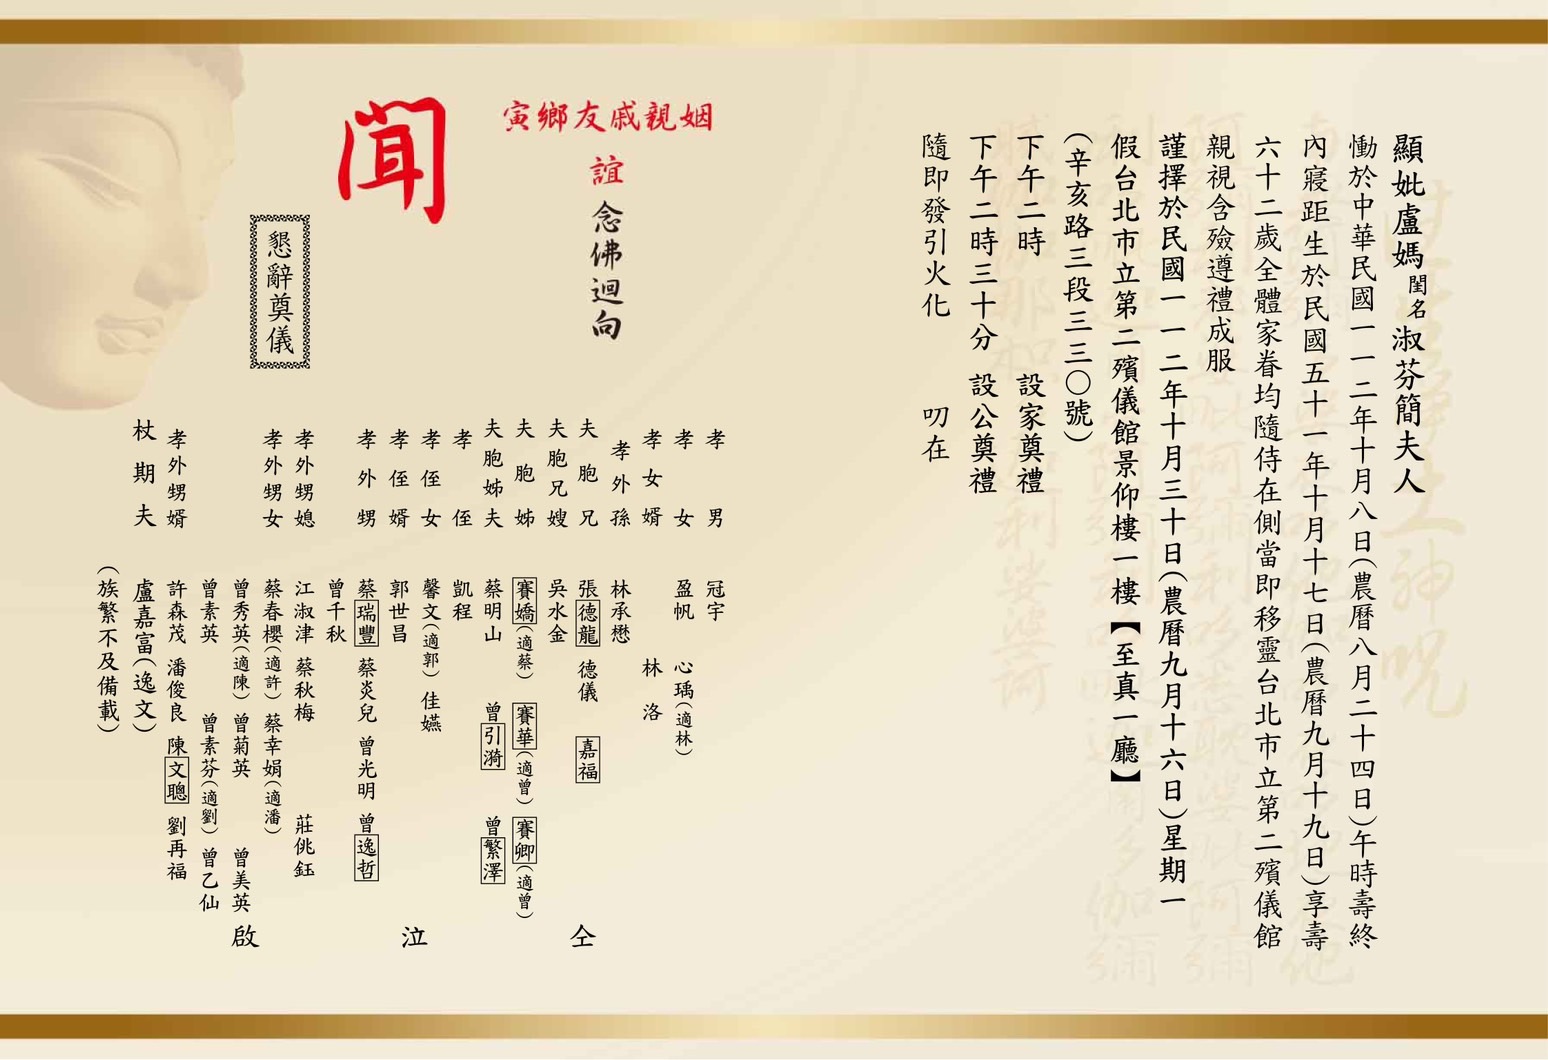 顯妣盧媽閨名淑芬簡夫人
慟於中華民國一一二年十月八日(農曆八月二十四日)午時壽終
內寢距生於民國五十一年十月十七日(農曆九月十九日)享壽
六十二歲全體家眷均隨侍在側當即移靈台北市立第二殯儀館
親視含殮遵禮成服
謹擇於民國一一二年十月三十日(農曆九月十六日)星期一
假台北市立第二殯儀館景仰樓一樓【至真一廳】
(辛亥路三段三三〇號)
下午二時 設家奠禮
下午二時三十分 設公奠禮
隨即發引火化 叨在
姻親戚友鄉寅
誼 念佛迴向
聞
懇辭奠儀
孝男 冠宇
孝女 盈帆 心瑀(適林)
孝女婿 林洛
孝外孫 林承懋
夫胞兄 張德龍 德儀 嘉福
夫胞兄嫂 吳水金
夫胞姊 賽嬌(適蔡) 賽華(適曾) 賽卿(適曾)
夫胞姊夫 蔡明山 曾引漪 曾繁澤
孝侄 凱程
孝侄女 馨文(適郭) 佳嬿
孝侄婿 郭世昌
孝外甥 蔡瑞豐 蔡炎兒 曾光明 曾逸哲
曾千秋
孝外甥媳 江淑津 蔡秋梅 莊佻鈺
孝外甥女 蔡春櫻(適許) 蔡幸娟(適潘)
曾秀英(適陳) 曾菊英 曾美英
曾素英 曾素芬(適劉) 曾乙仙
孝外甥婿 許森茂 潘俊良 陳文聰 劉再福
杖期夫 盧嘉富(逸文)
(族繁不及備載)
仝 泣 啟